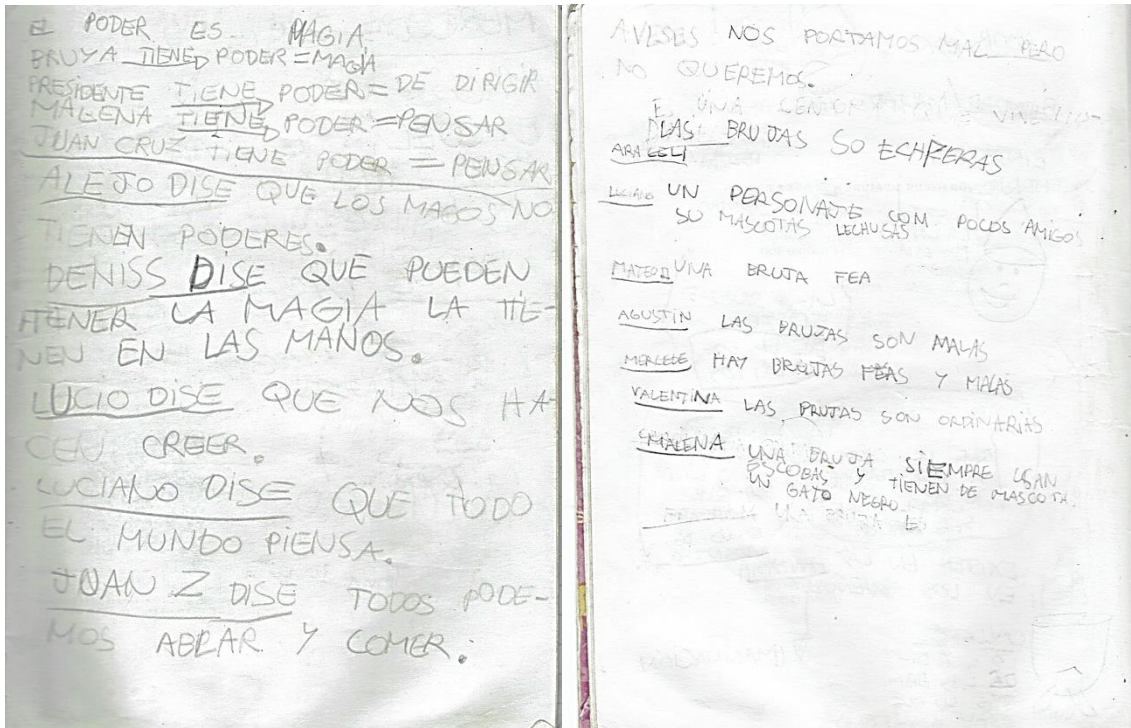 EL PODER ES MAGIA
BRUYA TIENE PODER = MAGIA
PRESIDENTE TIENE PODER = DE DIRIGIR
MALENA TIENE PODER = PENSAR
JUAN CRUZ TIENE PODER = PENSAR
ALEJO DISE QUE LOS MAGOS NO
TIENEN PODERES.
DENISS DISE QUE PUEDEN
TENER LA MAGIA LA TIE-
NEN EN LAS MANOS.
LUCIO DISE QUE NOS HA-
CEN CREER.
LUCIANO DISE QUE TODO
EL MUNDO PIENSA.
JUAN Z DISE TODOS PODE-
MOS ABLAR Y COMER.
AVESES NOS PORTAMOS MAL PERO
NO QUEREMOS.
UNA
LAS BRUJAS SO ECHIZERAS
ARACELI
LUCIANO UN PERSONAJE COM POCOS AMIGOS
SU MASCOTAS LECHUSAS
MATEO UNA BRUJA FEA
AGUSTIN LAS BRUJAS SON MALAS
MERCEDE HAY BRUJAS FEAS Y MALAS
VALENTINA LAS BRUJAS SON ORDINARIAS
MALENA UNA BRUJA SIEMPRE USAN
ESCOBAS Y TIENEN DE MASCOTA
UN GATO NEGRO.